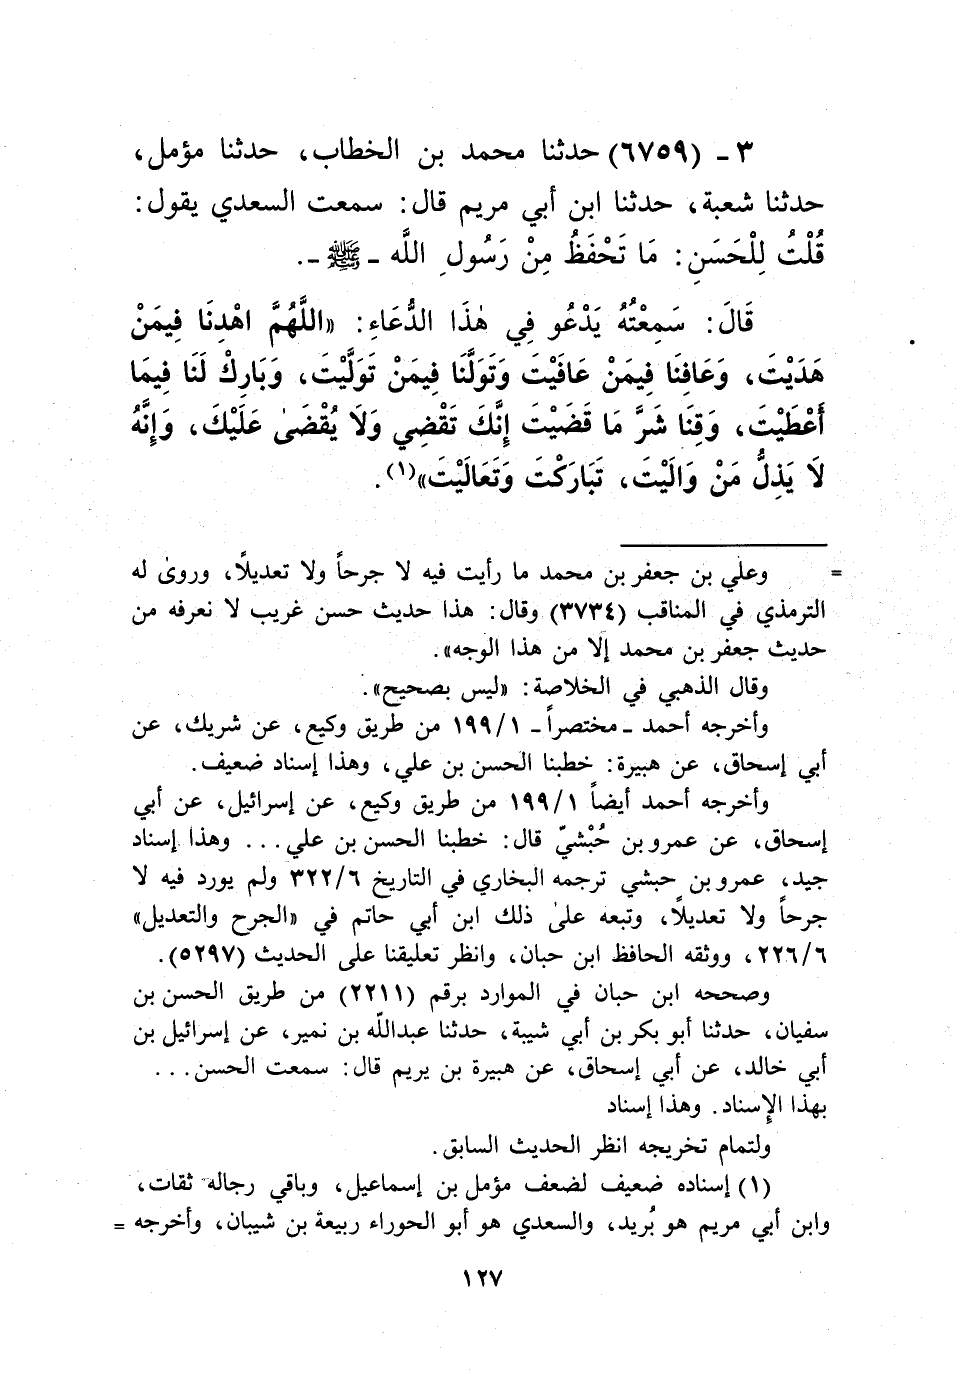 ٣ ـ (٦٧٥٩) حدثنا محمد بن الخطاب، حدثنا مؤمل،
حدثنا شعبة، حدثنا ابن أبي مريم قال: سمعت السعدي يقول:
قُلْتُ لِلْحَسَنِ: مَا تَحْفَظُ مِنْ رَسُولِ اللَّه ـ ﷺ ـ.
قَالَ: سَمِعْتُهُ يَدْعُو فِي هٰذَا الدُّعَاءِ: «اللَّهُمَّ اهْدِنَا فِيمَنْ
هَدَيْتَ، وَعَافِنَا فِيمَنْ عَافَيْتَ وَتَوَلَّنَا فِيمَنْ تَوَلَّيْتَ، وَبَارِكْ لَنَا فِيمَا
أَعْطَيْتَ، وَقِنَا شَرَّ مَا قَضَيْتَ إِنَّكَ تَقْضِي وَلَا يُقْضَىٰ عَلَيْكَ، وَإِنَّهُ
لَا يَذِلُّ مَنْ وَالَيْتَ، تَبَارَكْتَ وَتَعَالَيْتَ»(١).
= وعلي بن جعفر بن محمد ما رأيت فيه لا جرحاً ولا تعديلاً، وروىٰ له
الترمذي في المناقب (٣٧٣٤) وقال: هذا حديث حسن غريب لا نعرفه من
حديث جعفر بن محمد إلا من هذا الوجه».
وقال الذهبي في الخلاصة: «ليس بصحيح».
وأخرجه أحمد ـ مختصراً ـ ١٩٩/١ من طريق وكيع، عن شريك، عن
أبي إسحاق، عن هبيرة: خطبنا الحسن بن علي، وهذا إسناد ضعيف.
وأخرجه أحمد أيضاً ١٩٩/١ من طريق وكيع، عن إسرائيل، عن أبي
إسحاق، عن عمرو بن حُبْشيّ قال: خطبنا الحسن بن علي... وهذا إسناد
جيد، عمرو بن حبشي ترجمه البخاري في التاريخ ٣٢٢/٦ ولم يورد فيه لا
جرحاً ولا تعديلاً، وتبعه علىٰ ذلك ابن أبي حاتم في «الجرح والتعديل»
٢٢٦/٦، ووثقه الحافظ ابن حبان، وانظر تعليقنا على الحديث (٥٢٩٧).
وصححه ابن حبان في الموارد برقم (٢٢١١) من طريق الحسن بن
سفيان، حدثنا أبو بكر بن أبي شيبة، حدثنا عبدالله بن نمير، عن إسرائيل بن
أبي خالد، عن أبي إسحاق، عن هبيرة بن يريم قال: سمعت الحسن...
بهذا الإِسناد. وهذا إسناد
ولتمام تخريجه انظر الحديث السابق.
(١) إسناده ضعيف لضعف مؤمل بن إسماعيل، وباقي رجاله ثقات،
وابن أبي مريم هو بُريد، والسعدي هو أبو الحوراء ربيعة بن شيبان، وأخرجه =
١٢٧